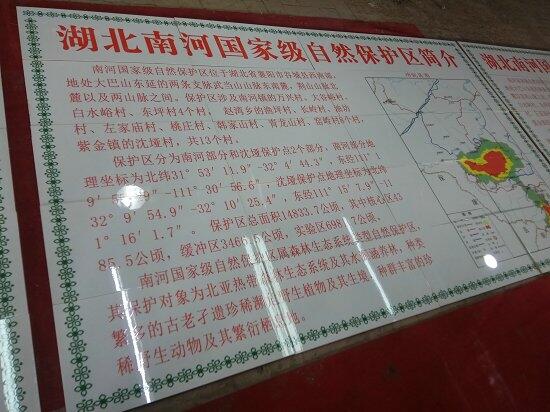 湖北南河国家级自然保护区简介
南河国家级自然保护区位于湖北省襄阳市谷城县西南部，
地处大巴山东延的两条支脉武当山山脉东南麓、荆山山脉北
麓以及两山脉之间。保护区涉及南河镇的万兴村、大谷峪村、
白水峪村、东坪村4个村，赵湾乡的渔坪村、长岭村、渔坊
村、左家庙村、桃庄村、韩家山村、青龙山村、窑岭村8个村，
紫金镇的沈垭村，共13个村。
保护区分为南河部分和沈垭保护点2个部分，南河部分地
理坐标为北纬31° 53′ 11.9″-32° 4′ 44.3″，东经111°
9′ -111° 30′ 56.6″，沈垭保护点地理坐标为北纬
32° 9′ 54.9″-32° 10′ 25.4″，东经111° 15′ 7.9″-11
1° 16′ 1.7″。保护区总面积14833.7公顷，其中核心区43
85.5公顷，缓冲区3466.5公顷，实验区698 .7公顷。
南河国家级自然保护区属森林生态系统类型自然保护区，
其保护对象为北亚热带 林生态系统及其水 涵养林，种类
繁多的古老孑遗珍稀濒 野生植物及其生境，种群丰富的珍
稀野生动物及其繁衍栖 地。
湖北南河